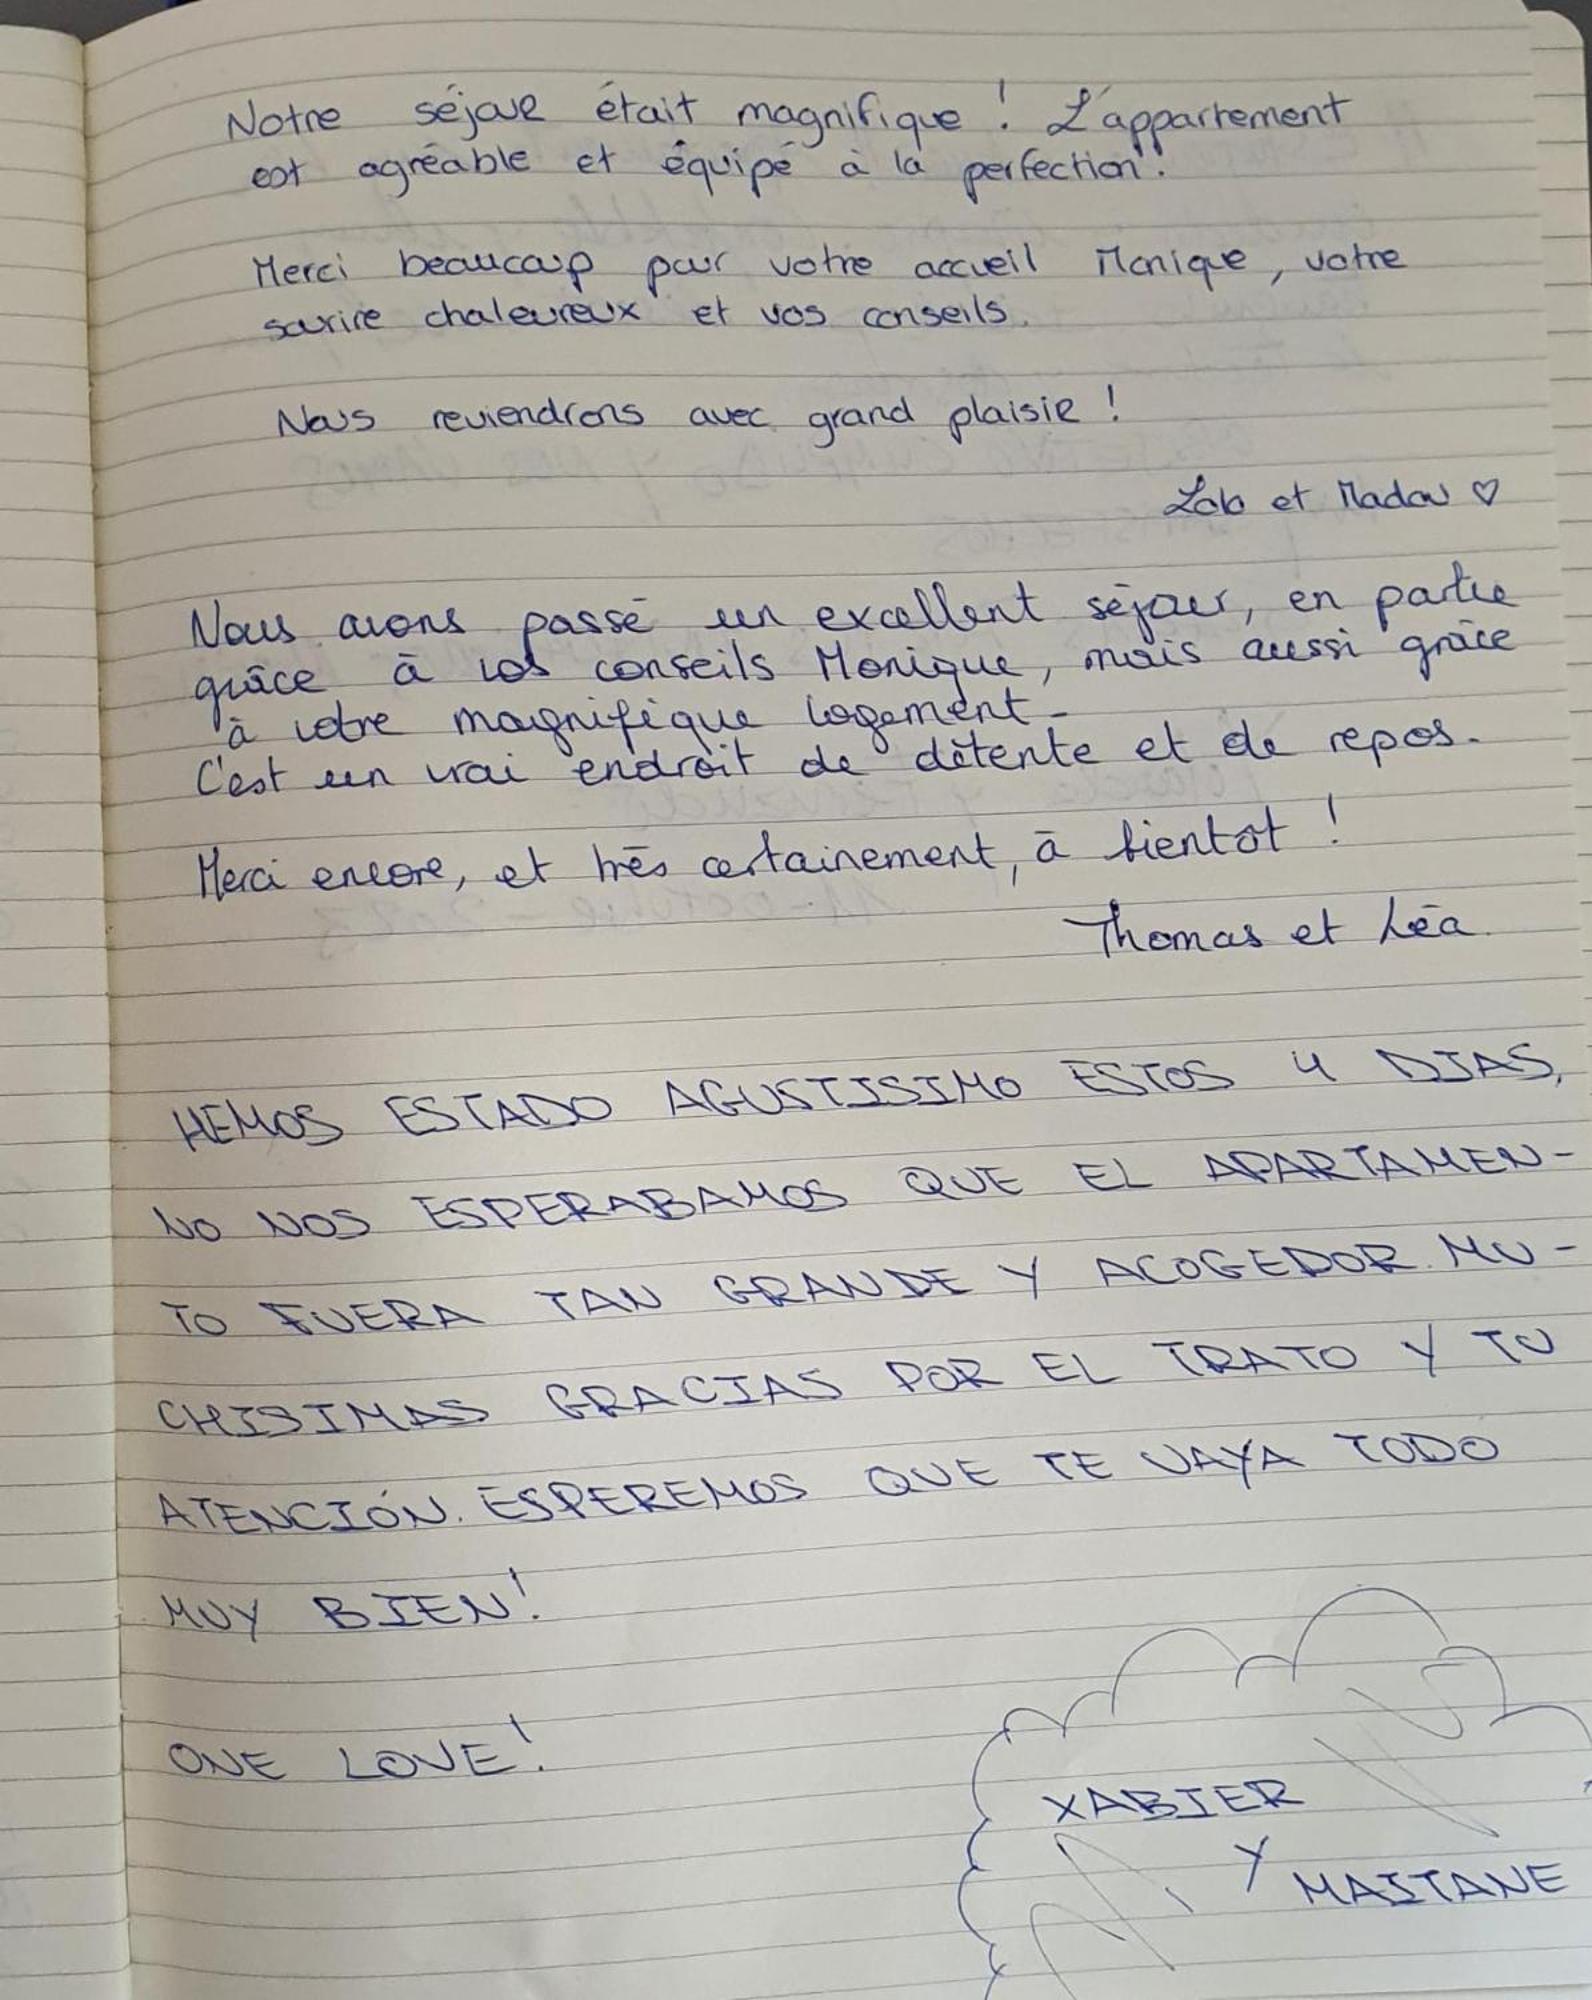 Notre séjour était magnifique ! L'appartement
est agréable et équipé à la perfection !
Merci beaucoup pour votre accueil Monique, votre
sourire chaleureux et vos conseils.
Nous reviendrons avec grand plaisir !
et Madou ♡
Nous avons passé un excellent séjour, en partie
grâce à vos conseils Monique, mais aussi grâce
à votre magnifique logement.
C'est un vrai endroit de détente et de repos.
Merci encore, et très certainement, à bientôt !
Thomas et Léa
HEMOS ESTADO AGUSTISIMO ESTOS 4 DIAS,
NO NOS ESPERABAMOS QUE EL APARTAMEN-
TO FUERA TAN GRANDE Y ACOGEDOR. MU-
CHISIMAS GRACIAS POR EL TRATO Y TU
ATENCIÓN. ESPEREMOS QUE TE VAYA TODO
MUY BIEN!
ONE LOVE!
XABIER
Y MAITANE